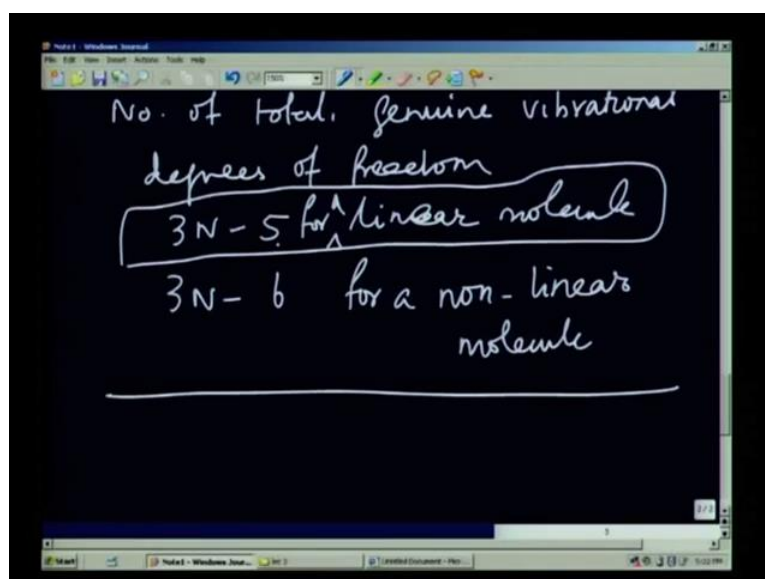 Note1 - Windows Journal
File Edit View Insert Actions Tools Help
150%
No. of total. genuine vibrational
degrees of freedom
3N - 5 for a linear molecule
3N - 6 for a non-linear
molecule
2/2
1
Start Note1 - Windows Jour... lec 3 Untitled Document - 5:02 PM